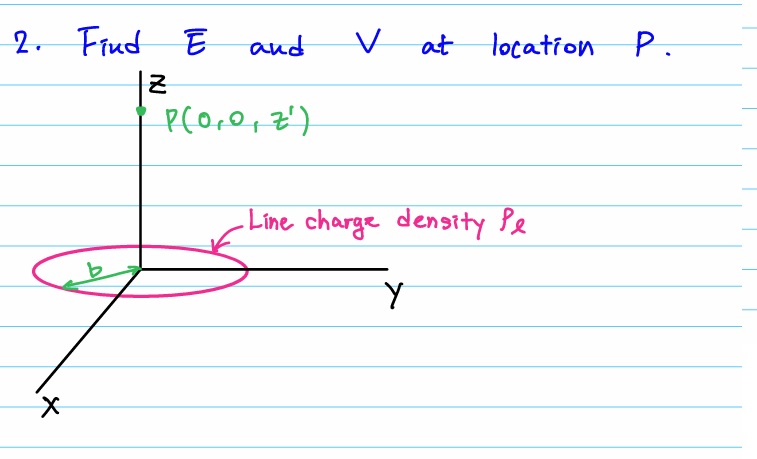 2. Find E and V at location P.
Z
P(0,0,z')
Line charge density ρℓ
b
Y
X